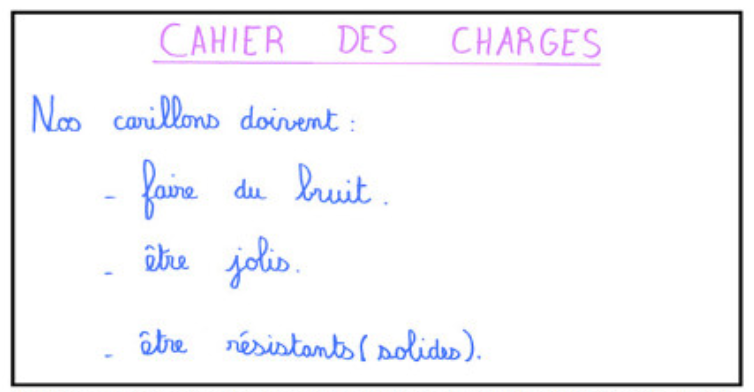 CAHIER DES CHARGES
Nos carillons doivent :
- faire du bruit.
- être jolis.
- être résistants (solides).